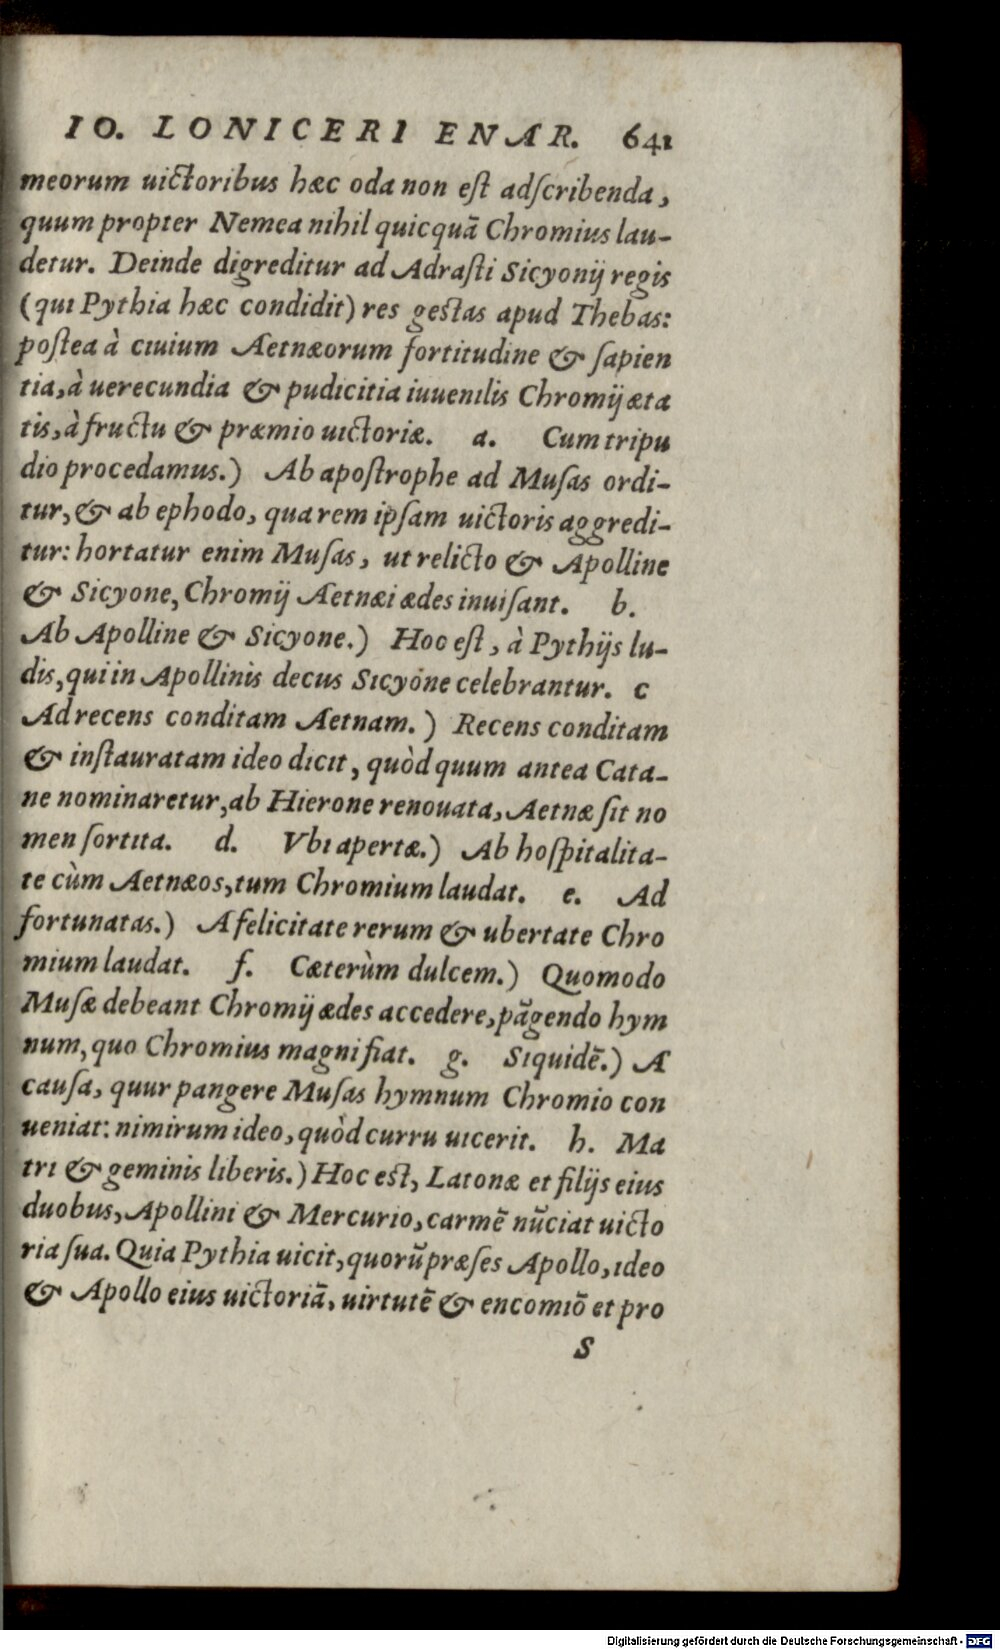 IO. LONICERI ENAR. 641
meorum uictoribus hæc oda non est adſcribenda,
quum propter Nemea nihil quicquã Chromius lau-
detur. Deinde digreditur ad Adraſti Sicyonij regis
(qui Pythia hæc condidit) res gestas apud Thebas:
poſtea à ciuium Aetnæorum fortitudine & ſapien
tia, à uerecundia & pudicitia iuuenilis Chromij æta
tis, à fructu & præmio uictoriæ. a. Cum tripu
dio procedamus.) Ab apoſtrophe ad Muſas ordi-
tur, & ab ephodo, qua rem ipſam uictoris aggredi-
tur: hortatur enim Muſas, ut relicto & Apolline
& Sicyone, Chromij Aetnæi ædes inuiſant. b.
Ab Apolline & Sicyone.) Hoc eſt, à Pythijs lu-
dis, qui in Apollinis decus Sicyone celebrantur. c
Ad recens conditam Aetnam.) Recens conditam
& inſtauratam ideo dicit, quòd quum antea Cata-
ne nominaretur, ab Hierone renouata, Aetnæ ſit no
men ſortita. d. Vbi apertæ.) Ab hoſpitalita-
te cùm Aetnæos, tum Chromium laudat. e. Ad
fortunatas.) A felicitate rerum & ubertate Chro
mium laudat. f. Cæterùm dulcem.) Quomodo
Muſæ debeant Chromij ædes accedere, pãgendo hym
num, quo Chromius magnifiat. g. Siquidẽ.) A
cauſa, quur pangere Muſas hymnum Chromio con
ueniat: nimirum ideo, quòd curru uicerit. h. Ma
tri & geminis liberis.) Hoc est, Latonæ et filijs eius
duobus, Apollini & Mercurio, carmẽ nũciat uicto
ria ſua. Quia Pythia uicit, quorũ præſes Apollo, ideo
& Apollo eius uictoriã, uirtutẽ & encomiõ et pro
S
Digitalisierung gefördert durch die Deutsche Forschungsgemeinschaft - DFG